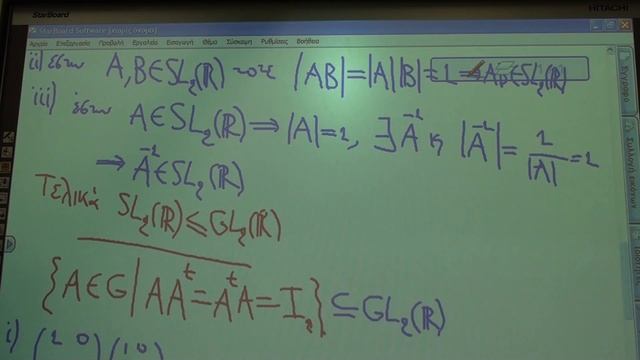 StarBoard
HITACHI
StarBoard Software
Αρχείο Επεξεργασία Προβολή Εργαλεία Εισαγωγή Θέμα Σύσκεψη Ρυθμίσεις Βοήθεια
ii) έστω A, B ∈ SL₂(ℝ) τότε |AB| = |A||B| = 1 ⇒ AB ∈ SL₂(ℝ)
iii) έστω A ∈ SL₂(ℝ) ⇒ |A| = 1, ∃ A⁻¹ κ |A⁻¹| = 1/|A| = 1
⇒ A⁻¹ ∈ SL₂(ℝ)
Τελικά SL₂(ℝ) ≤ GL₂(ℝ)
{A ∈ G | AAᵗ = AᵗA = I₂} ⊆ GL₂(ℝ)
i) (1 0) (1 0)